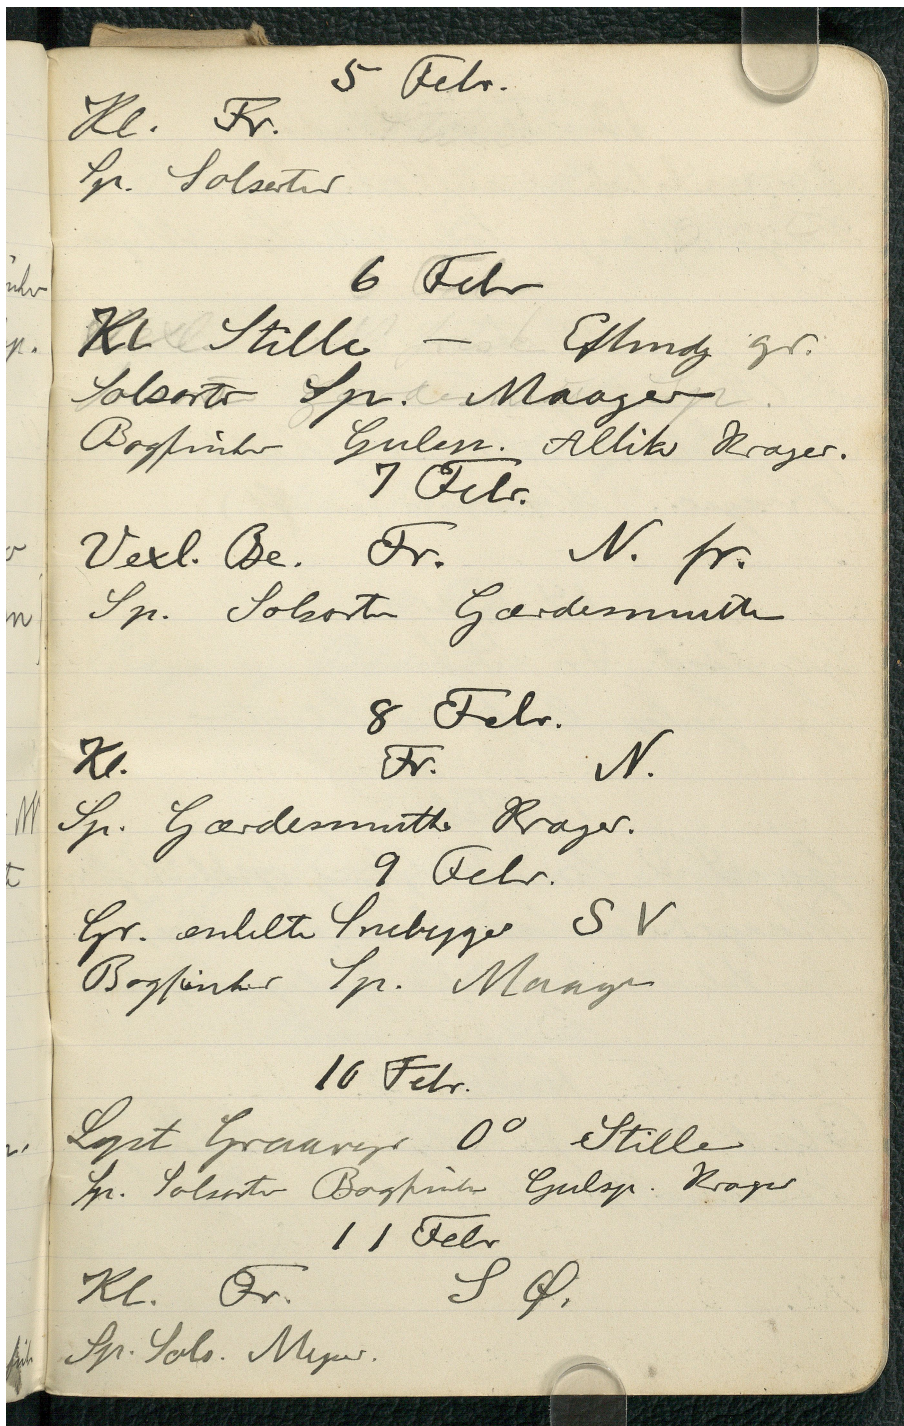 5 Febr.
Kl. Fr.
Sp. Solsorter
6 Febr
Kl Stille — Eftmdg gr.
Solsorte Sp. Maager
Bogfinker Gulsp. Allike Krager.
7 Febr.
Vexl. Be. Fr. N. fr.
Sp. Solsorte Gærdesmutte
8 Febr.
Kl. Fr. N.
Sp. Gærdesmutte Krager.
9 Febr.
Gr. enkelte Snebyger S V
Bogfinker Sp. Maage
10 Febr.
Lyst Graavejr 0° Stille
Sp. Solsorte Bogfinke Gulsp. Krager
11 Febr
Kl. Fr. S Ø.
Sp. Sols. Mejser.